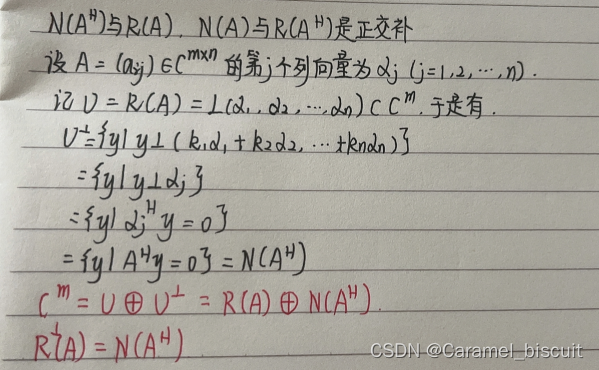 N(Aᴴ)与R(A)，N(A)与R(Aᴴ)是正交补
设 A = (aij) ∈ Cᵐˣⁿ 的第j个列向量为 αj (j=1,2,…,n).
记 U = R(A) = L(α₁, α₂, …, αn) ⊂ Cᵐ. 于是有.
U⊥={y| y⊥(k₁α₁ + k₂α₂, … + knαn)}
={y| y⊥αj}
={y| αjᴴ y = 0}
={y| Aᴴy = 0} = N(Aᴴ)
Cᵐ = U ⊕ U⊥ = R(A) ⊕ N(Aᴴ).
R⊥(A) = N(Aᴴ)
CSDN @Caramel_biscuit